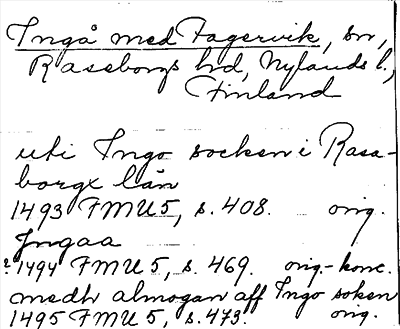 Ingå med Fagervik, sn,
Raseborgs hd, Nylands l.,
Finland
uti Ingo socken i Rasa-
borgx län
1493 FMU 5, s. 408. orig.
Ingaa
? 1494 FMU 5, s. 469. orig.-konc.
medh almogan aff Ingo soken
1495 FMU 5, s. 473. orig.